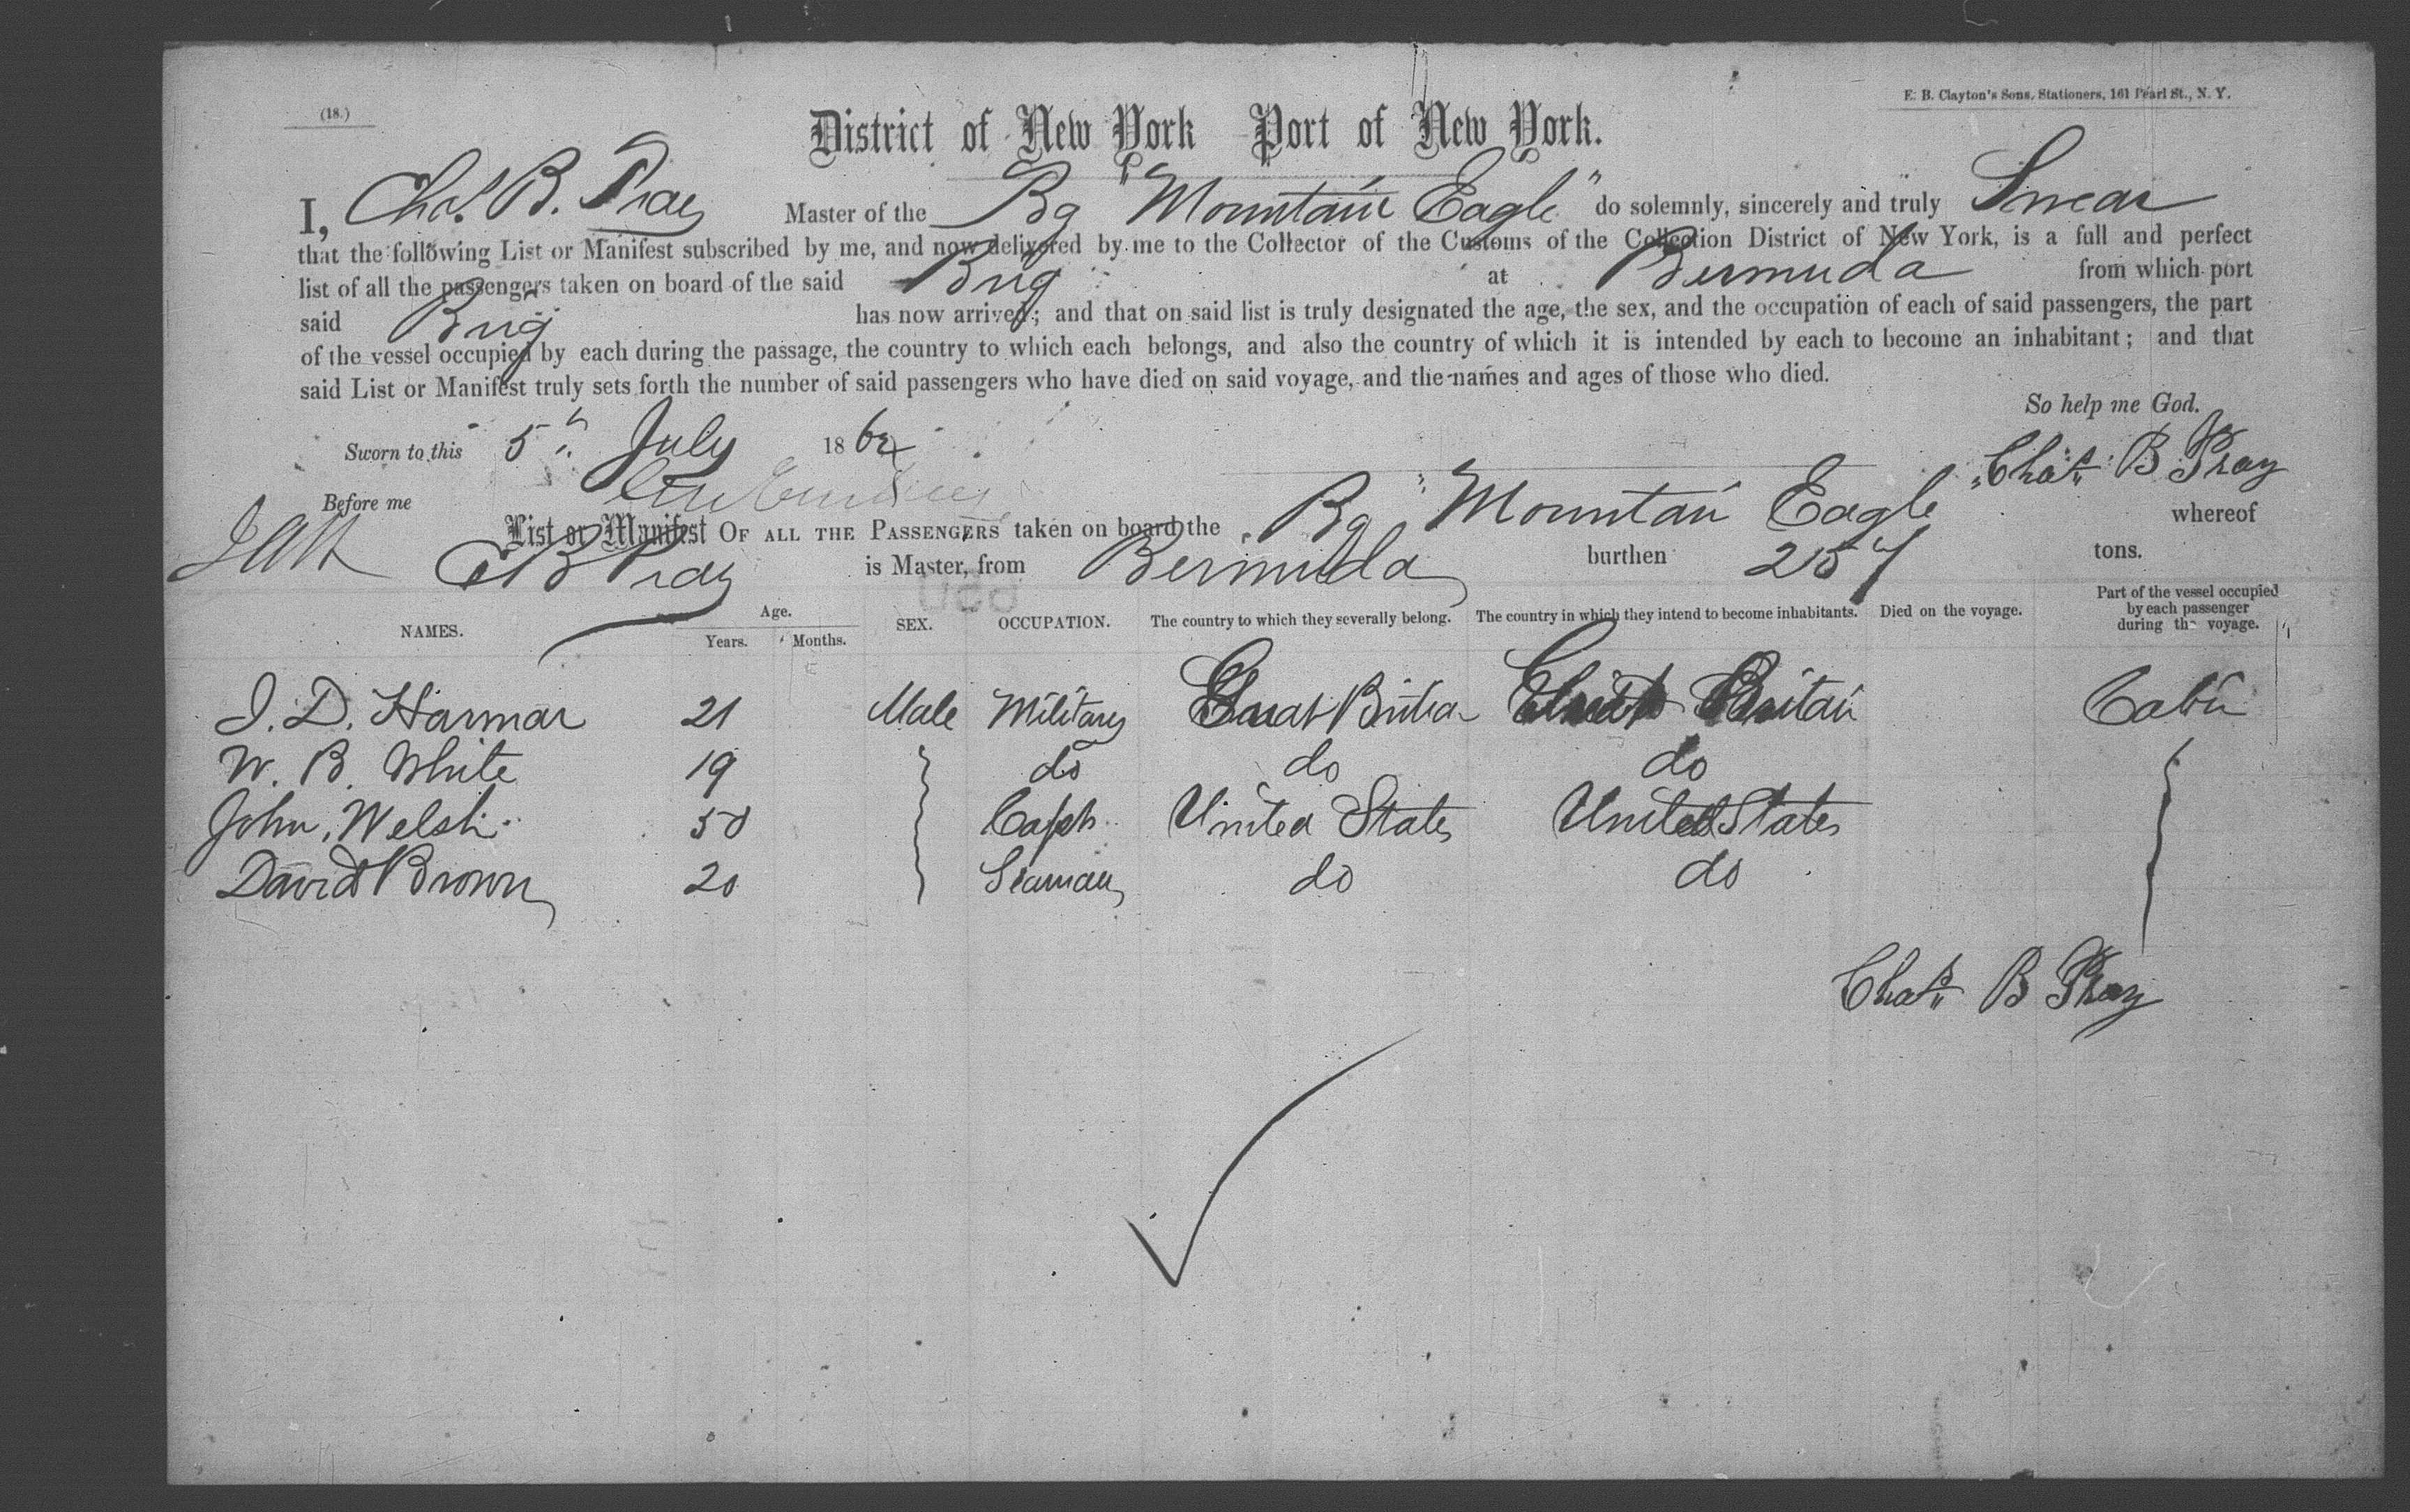 (18.)
E. B. Clayton's Sons, Stationers, 161 Pearl St., N. Y.
District of New York Port of New York.
I, Chas. B. Pray Master of the Bg "Mountain Eagle" do solemnly, sincerely and truly Swear
that the following List or Manifest subscribed by me, and now delivered by me to the Collector of the Customs of the Collection District of New York, is a full and perfect
list of all the passengers taken on board of the said Brig at Bermuda from which port
said Brig has now arrived; and that on said list is truly designated the age, the sex, and the occupation of each of said passengers, the part
of the vessel occupied by each during the passage, the country to which each belongs, and also the country of which it is intended by each to become an inhabitant; and that
said List or Manifest truly sets forth the number of said passengers who have died on said voyage, and the names and ages of those who died.
So help me God.
Sworn to this 5th July 186
Chas. B Pray
Before me
List or Manifest OF ALL THE PASSENGERS taken on board the Bg "Mountain Eagle" whereof
C B Pray is Master, from Bermuda burthen 257 tons.
NAMES. Age. Years. Months. SEX. OCCUPATION. The country to which they severally belong. The country in which they intend to become inhabitants. Died on the voyage. Part of the vessel occupied by each passenger during the voyage.
J. D. Harmar 21 Male Military Great Britain Great Britain Cabin
W. B. White 19 do do do
John Welsh 50 Capt. United States United States
David Brown 20 Seaman do do
Chas. B Pray